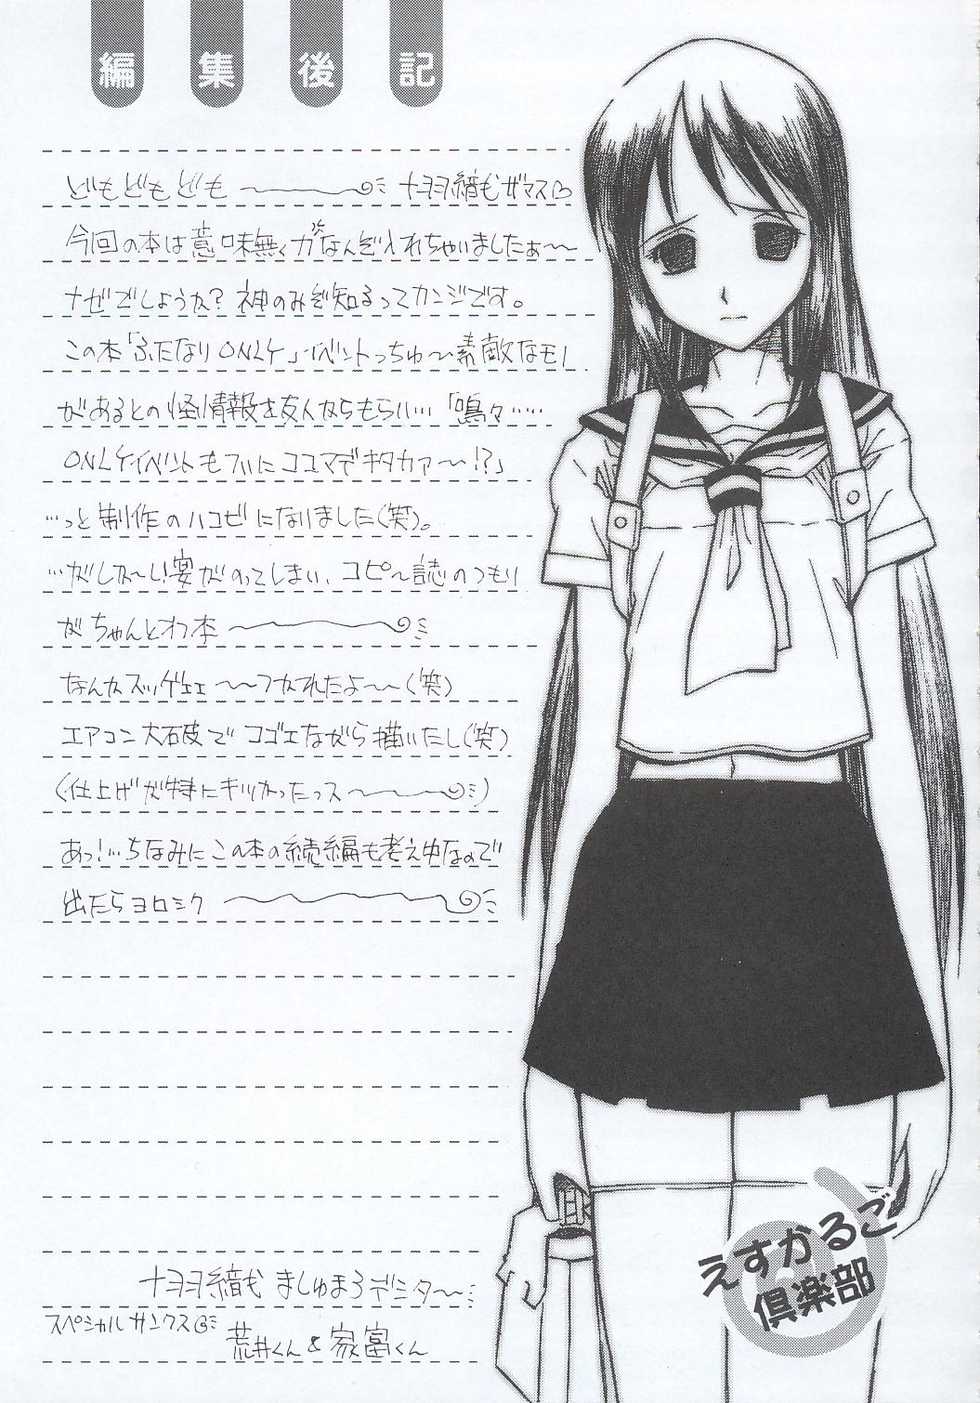 編集後記
どもどもども
今回の本は意味無くガなんぞ入れちゃいましたぁ〜〜
ナゼでしょうか?神のみぞ知るってカンジです。
この本「ふたなりONLY」イベントっちゅ〜素敵なモノ
があるとの怪情報を友人からもらい…「嗚々……
ONLYイベントもついにココマデキタカァ〜〜!?」
…っと制作のハコビになりました(笑)。
…がしか〜し!宴がのってしまい、コピ〜誌のつもり
がちゃんとオフ本
なんかスッゲェェ〜〜つかれたよ〜〜(笑)
エアコン大破でコゴエながら描いたし(笑)
(仕上げが特にキツかったっス〜〜)
あっ!…ちなみにこの本の続編も考え中なので
出たらヨロシク
ましゅまろデシタ〜〜
スペシャルサンクス
荒井くん&家富くん
えすかるご
倶楽部